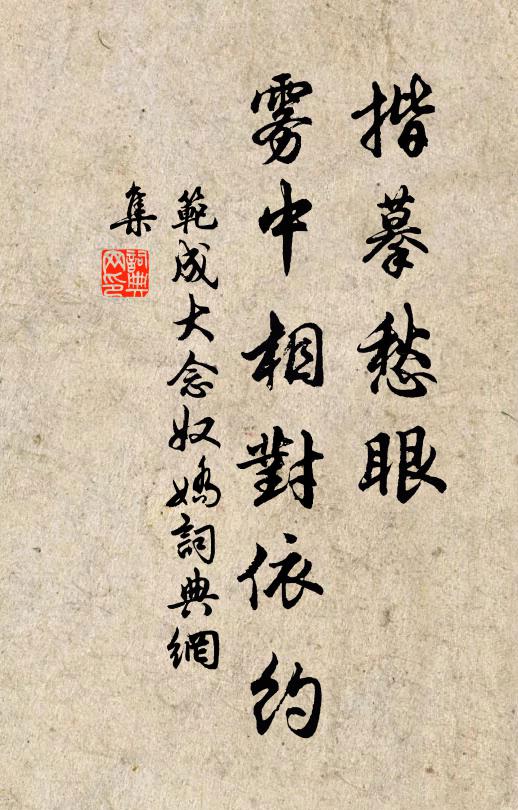 揩摹愁眼
雾中相對依約
範成大念奴嬌詞典網
集
詞典
网印